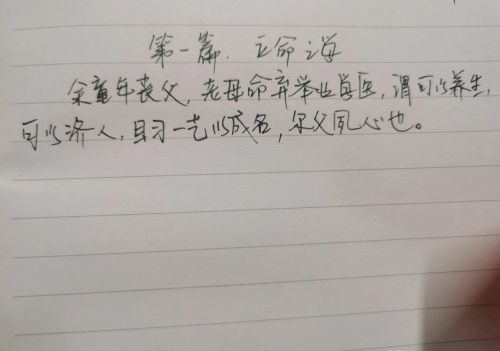 第一篇. 立命之学
余童年丧父,老母命弃举业学医,谓可以养生,
可以济人,且习一艺以成名,尔父夙心也。